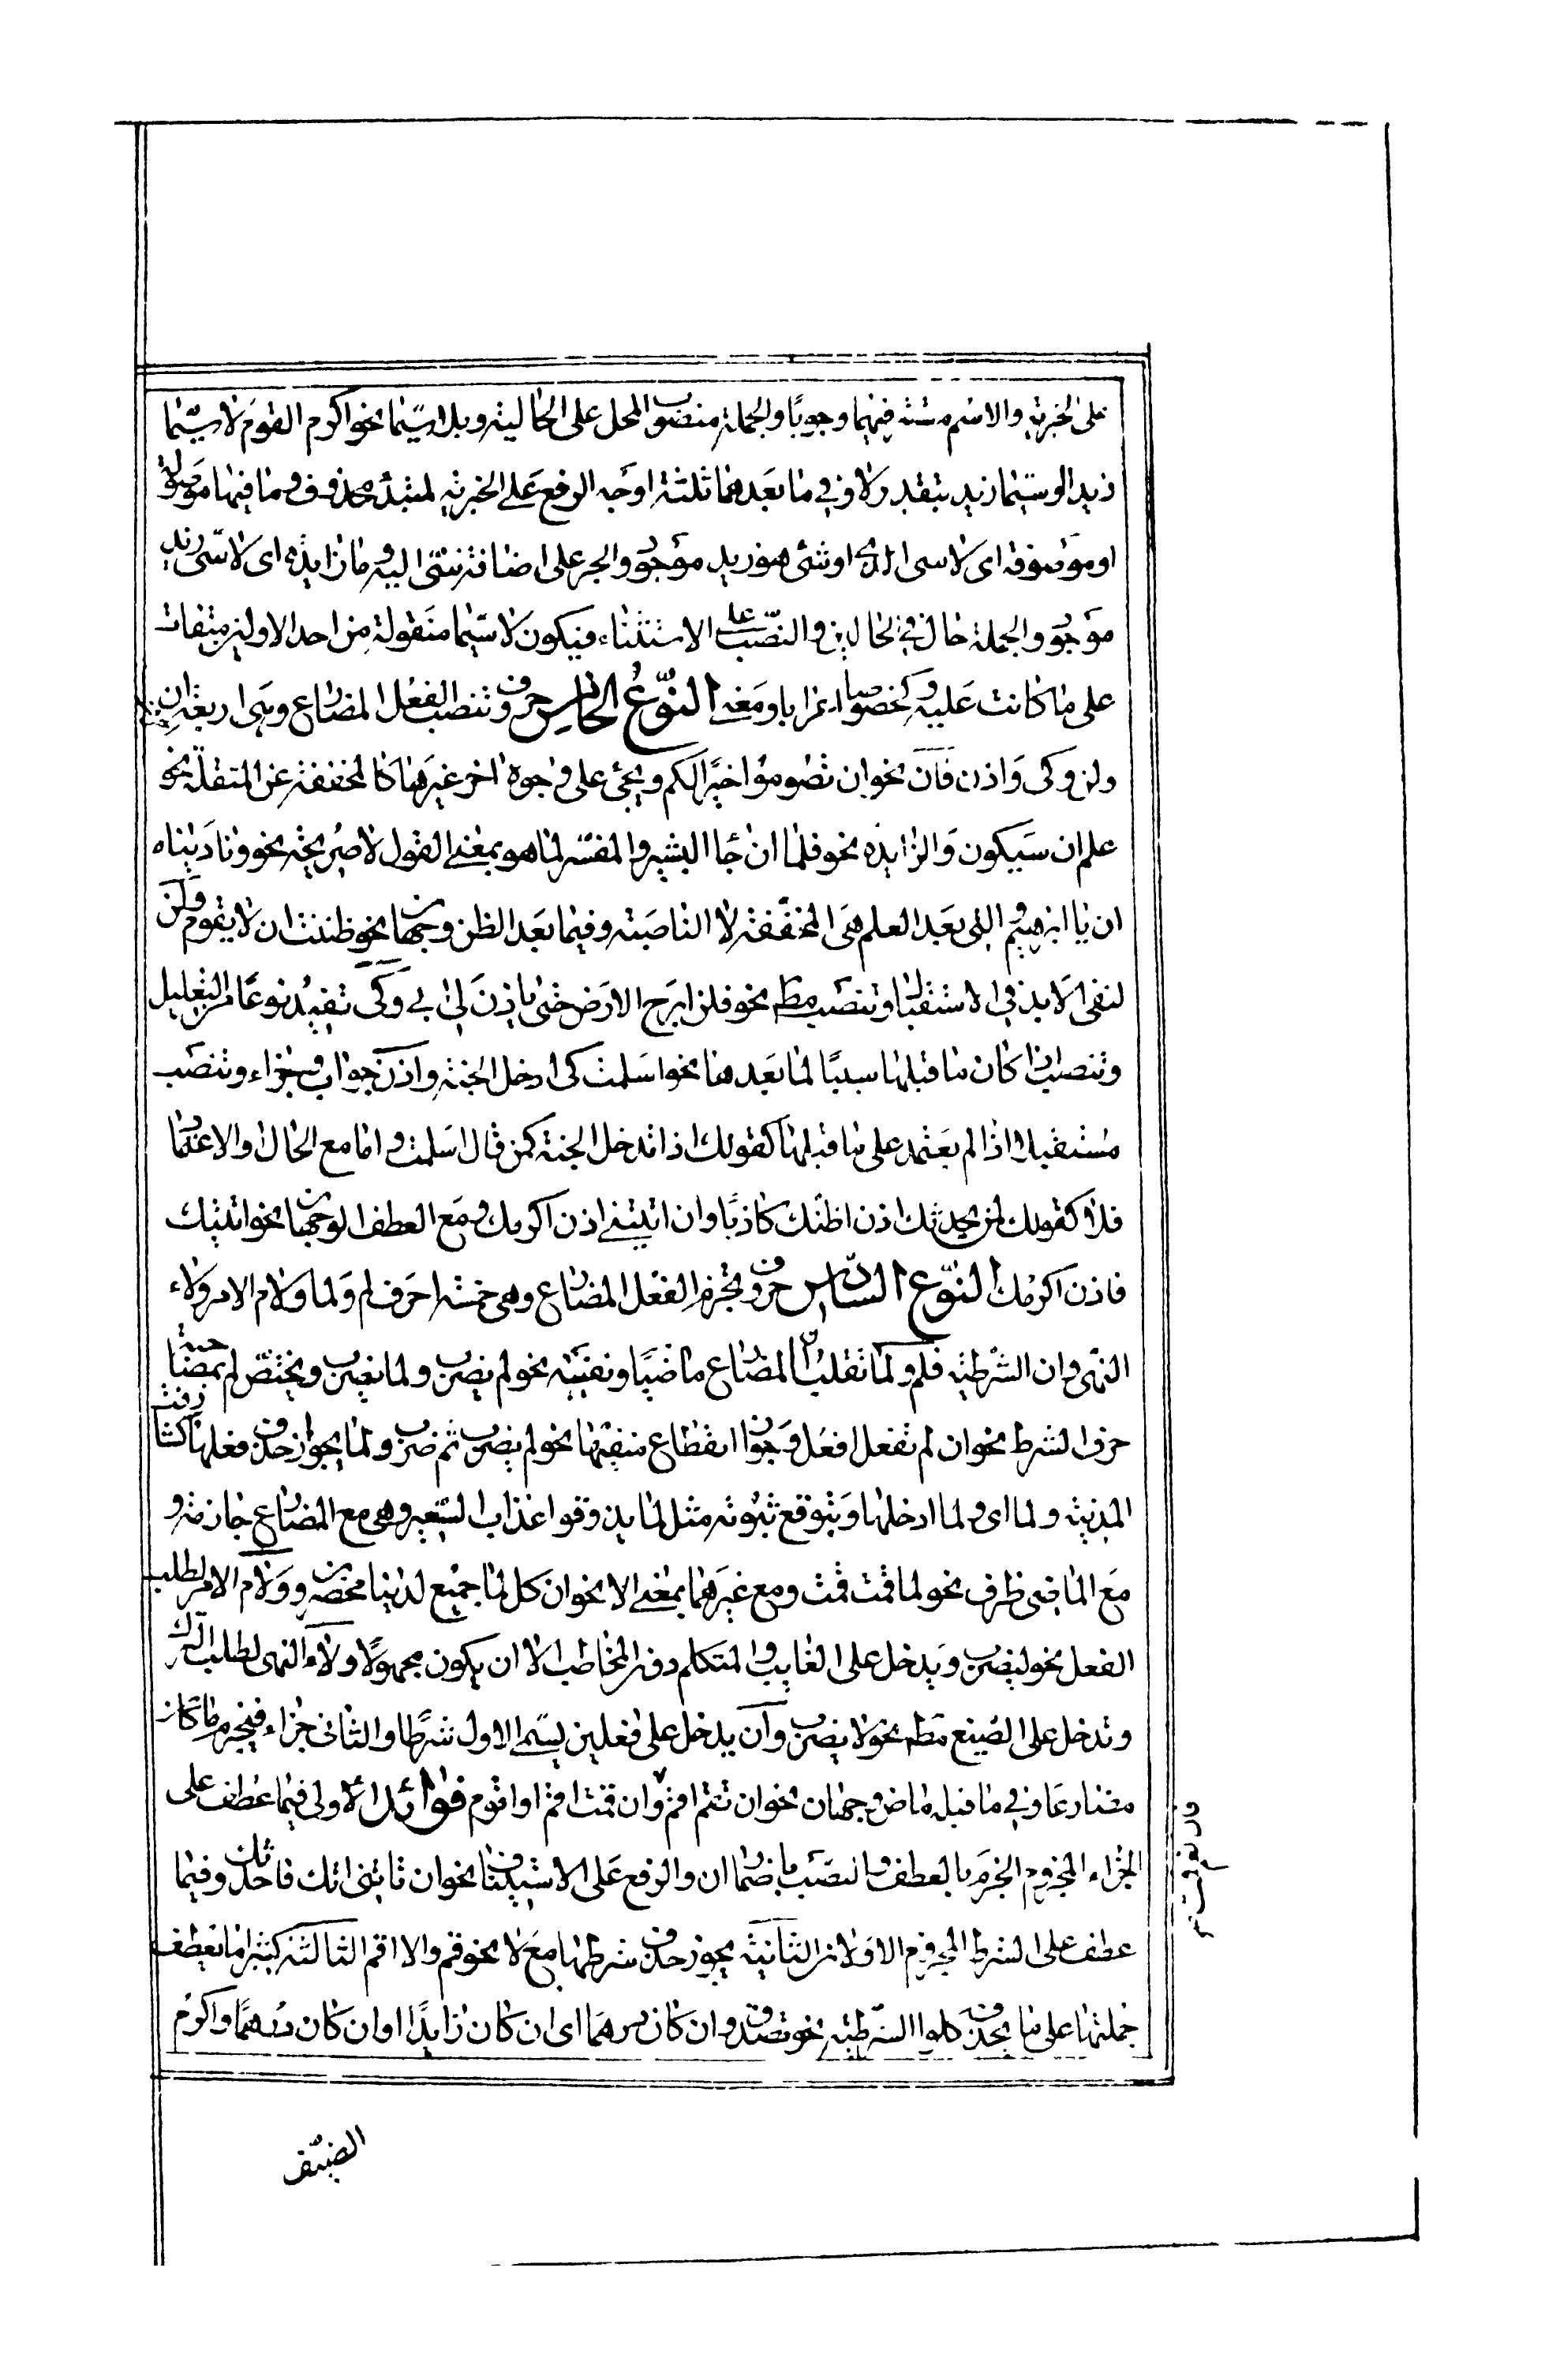 على الخبرية والاسم مستتر فيهما وجوبًا والجملة منصوب المحل على الحالية وبلا سيّما نحو اكرم القوم لا سيّما
زيد او سيّما زيد بتقدير لا وفي ما بعدهما ثلثة اوجه الرفع على الخبرية لمبتدء محذوف وما فيها موصولة
او موصوفة اى لا سى الذى او شئ هو زيد موجود والجر على اضافة سىّ اليه وما زايدة اى لا سىّ زيد
موجود والجملة حال في الحالين والنصب على الاستثناء فيكون لا سيّما منقولة من احد الاولين مبقاة
على ما كانت عليه وكخصوصا اعرابا ومعنى النوع الخامس حروف تنصب الفعل المضارع وهى اربعة ان
ولن وكى واذن فان نحو ان تصوموا خير لكم ويجئ على وجوه اخر غيرها كالمخففة عن المثقلة نحو
علم ان سيكون والزايدة نحو فلما ان جا البشير والمفسّر لما هو بمعنى القول لا صريحه نحو وناديناه
ان يا ابرهيم والتى بعد العلم هى المخففة لا الناصبة وفيما بعد الظن وجهان نحو ظننت ان لا يقوم ولن
لنفى الابد في الاستقبال وتنصب مطم نحو فلن ابرح الارض حتى ياذن لى ابى وكى تفيد نوعا من التعليل
وتنصب اذا كان ما قبلها سببًا لما بعدها نحو اسلمت كى ادخل الجنة واذن جواب وجزاء وتنصب
مستقبلا اذا لم يعتمد على ما قبلها كقولك اذا تدخل الجنة لمن قال اسلمت واما مع الحال والاعتماد
فلا كقولك لمن يحدثك اذن اظنك كاذبًا وان اتيتنى اذن اكرمك ومع العطف الوجهان نحو اتيتك
فاذن اكرمك النوع السادس حروف تجزم الفعل المضارع وهى خمسة احرف لم ولما ولام الامر ولاء
النهى وان الشرطية فلم ولما تقلبان المضارع ماضيًا ونفيته نحو لم يضرب ولما يضرب ويختص لم بمصاحبة
حرف الشرط نحو ان لم تفعل افعل وجواز انقطاع منفيها نحو لم يضرب ثم ضرب ولما بجواز حذف فعلها كشارفت
المدينة ولما اى ولما ادخلها وبتوقع ثبوته مثل لما يذوقوا عذاب السّعير وهى مع المضارع جازمة و
مع الماضى ظرف نحو لما قمت قمت ومع غيرهما بمعنى الا نحو ان كل لما جميع لدينا محضرون ولام الامر لطلب
الفعل نحو ليضرب ويدخل على الغايب والمتكلم دون المخاطب الا ان يكون مجهولًا ولاء النهى لطلب الترك
وتدخل على الصّيغ مطم نحو لا يضرب وان يدخل على فعلين يسمى الاول شرطا والثانى جزاء فينجزم ما كان
مضارعا وفي ما قبله ماض وجهان نحو ان تقم اقم وان قمت اقم او اقوم فوائد الاولى فيما عطف على
الجزاء المجزوم الجزم بالعطف والنصب باضمار ان والرفع على الاستيناف نحو ان تاتنى اتك فاحدثك وفيما
عطف على الشرط المجزوم الاولان الثانية يجوز حذف شرطها مع لا نحو قم والا اقم الثالثة كثيرا ما تعطف
جملتها على ما يحذف كلو الشرطية نحو تصدق وان كان درهما اى ان كان زايدًا او ان كان درهمًا واكرم
الضيف